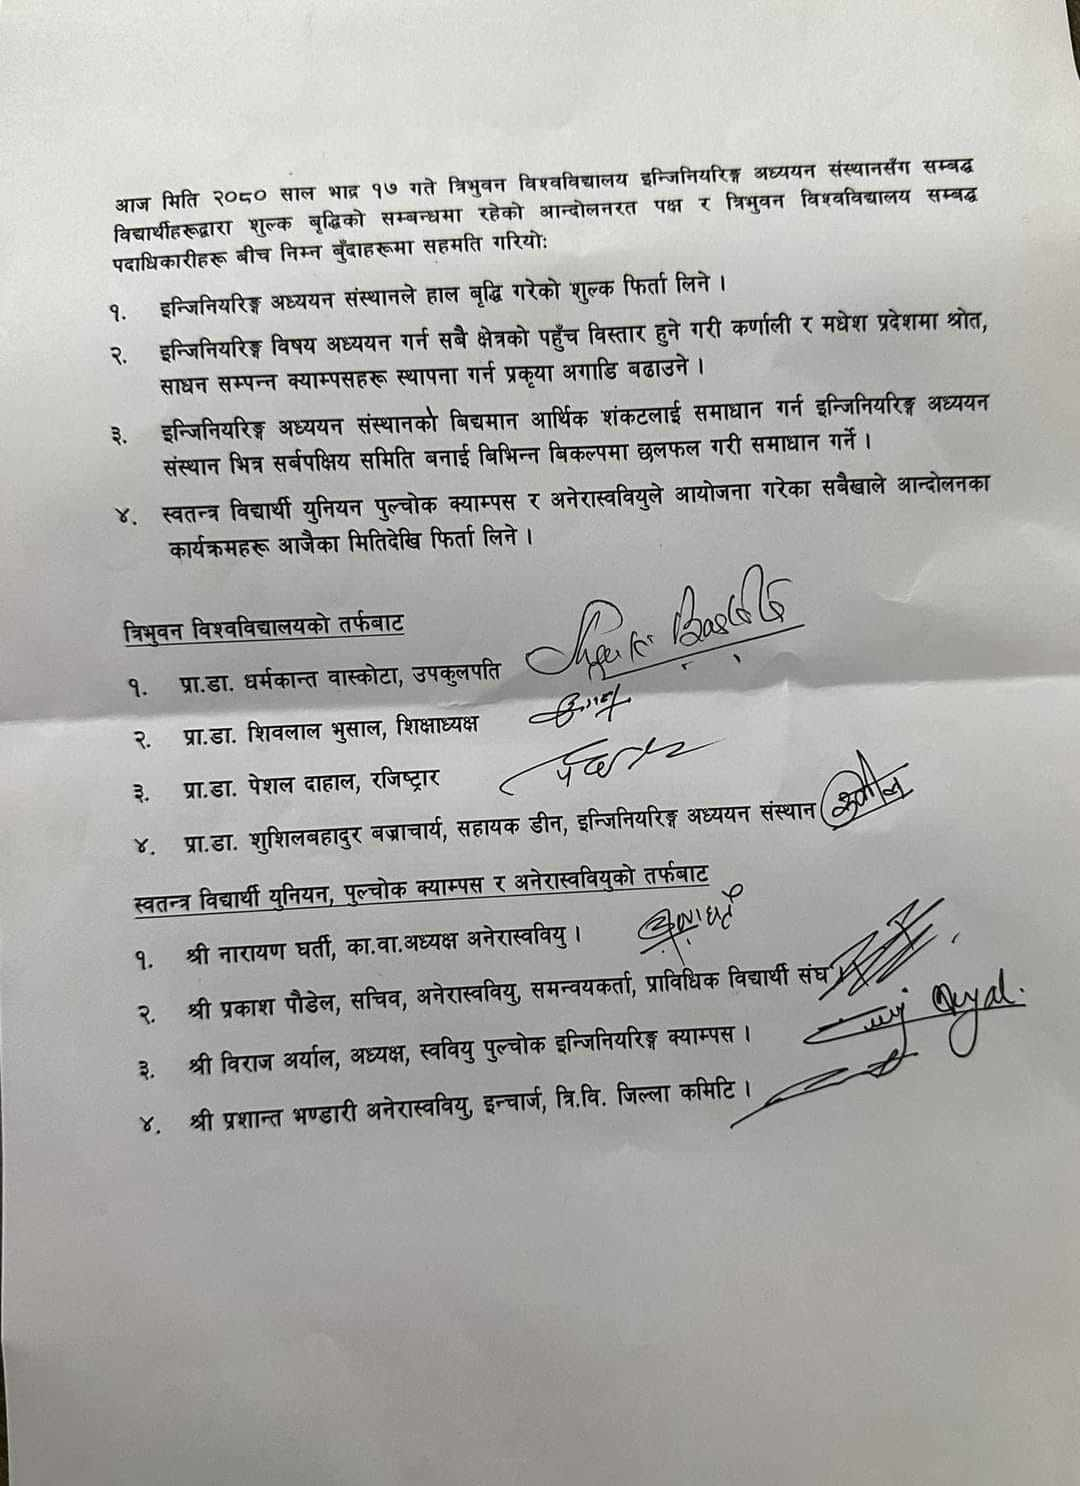 आज मिति २०८० साल भाद्र १७ गते त्रिभुवन विश्वविद्यालय इन्जिनियरिङ्ग अध्ययन संस्थानसँग सम्बद्ध
विद्यार्थीहरूद्वारा शुल्क बृद्धिको सम्बन्धमा रहेको आन्दोलनरत पक्ष र त्रिभुवन विश्वविद्यालय सम्बद्ध
पदाधिकारीहरू बीच निम्न बुँदाहरूमा सहमति गरियोः
१. इन्जिनियरिङ्ग अध्ययन संस्थानले हाल बृद्धि गरेको शुल्क फिर्ता लिने ।
२. इन्जिनियरिङ्ग विषय अध्ययन गर्न सबै क्षेत्रको पहुँच विस्तार हुने गरी कर्णाली र मधेश प्रदेशमा श्रोत,
साधन सम्पन्न क्याम्पसहरू स्थापना गर्न प्रकृया अगाडि बढाउने ।
३. इन्जिनियरिङ्ग अध्ययन संस्थानको बिद्यमान आर्थिक शंकटलाई समाधान गर्न इन्जिनियरिङ्ग अध्ययन
संस्थान भित्र सर्बपक्षिय समिति बनाई बिभिन्न बिकल्पमा छलफल गरी समाधान गर्ने ।
४. स्वतन्त्र विद्यार्थी युनियन पुल्चोक क्याम्पस र अनेरास्ववियुले आयोजना गरेका सबैखाले आन्दोलनका
कार्यक्रमहरू आजैका मितिदेखि फिर्ता लिने ।
त्रिभुवन विश्वविद्यालयको तर्फबाट
१. प्रा.डा. धर्मकान्त वास्कोटा, उपकुलपति
२. प्रा.डा. शिवलाल भुसाल, शिक्षाध्यक्ष
३. प्रा.डा. पेशल दाहाल, रजिष्ट्रार
४. प्रा.डा. शुशिलबहादुर बज्राचार्य, सहायक डीन, इन्जिनियरिङ्ग अध्ययन संस्थान
स्वतन्त्र विद्यार्थी युनियन, पुल्चोक क्याम्पस र अनेरास्ववियुको तर्फबाट
१. श्री नारायण घर्ती, का.वा.अध्यक्ष अनेरास्ववियु ।
२. श्री प्रकाश पौडेल, सचिव, अनेरास्ववियु, समन्वयकर्ता, प्राविधिक विद्यार्थी संघ ।
३. श्री विराज अर्याल, अध्यक्ष, स्ववियु पुल्चोक इन्जिनियरिङ्ग क्याम्पस ।
४. श्री प्रशान्त भण्डारी अनेरास्ववियु, इन्चार्ज, त्रि.वि. जिल्ला कमिटि ।